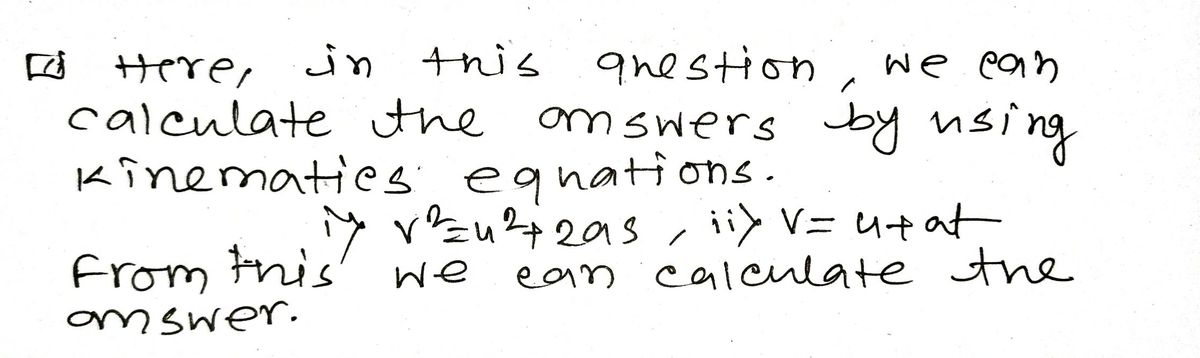 Here, in this question, we can
calculate the answers by using
Kinematics equations.
i) v²=u²+2as, ii) v=u+at
From this we can calculate the
answer.